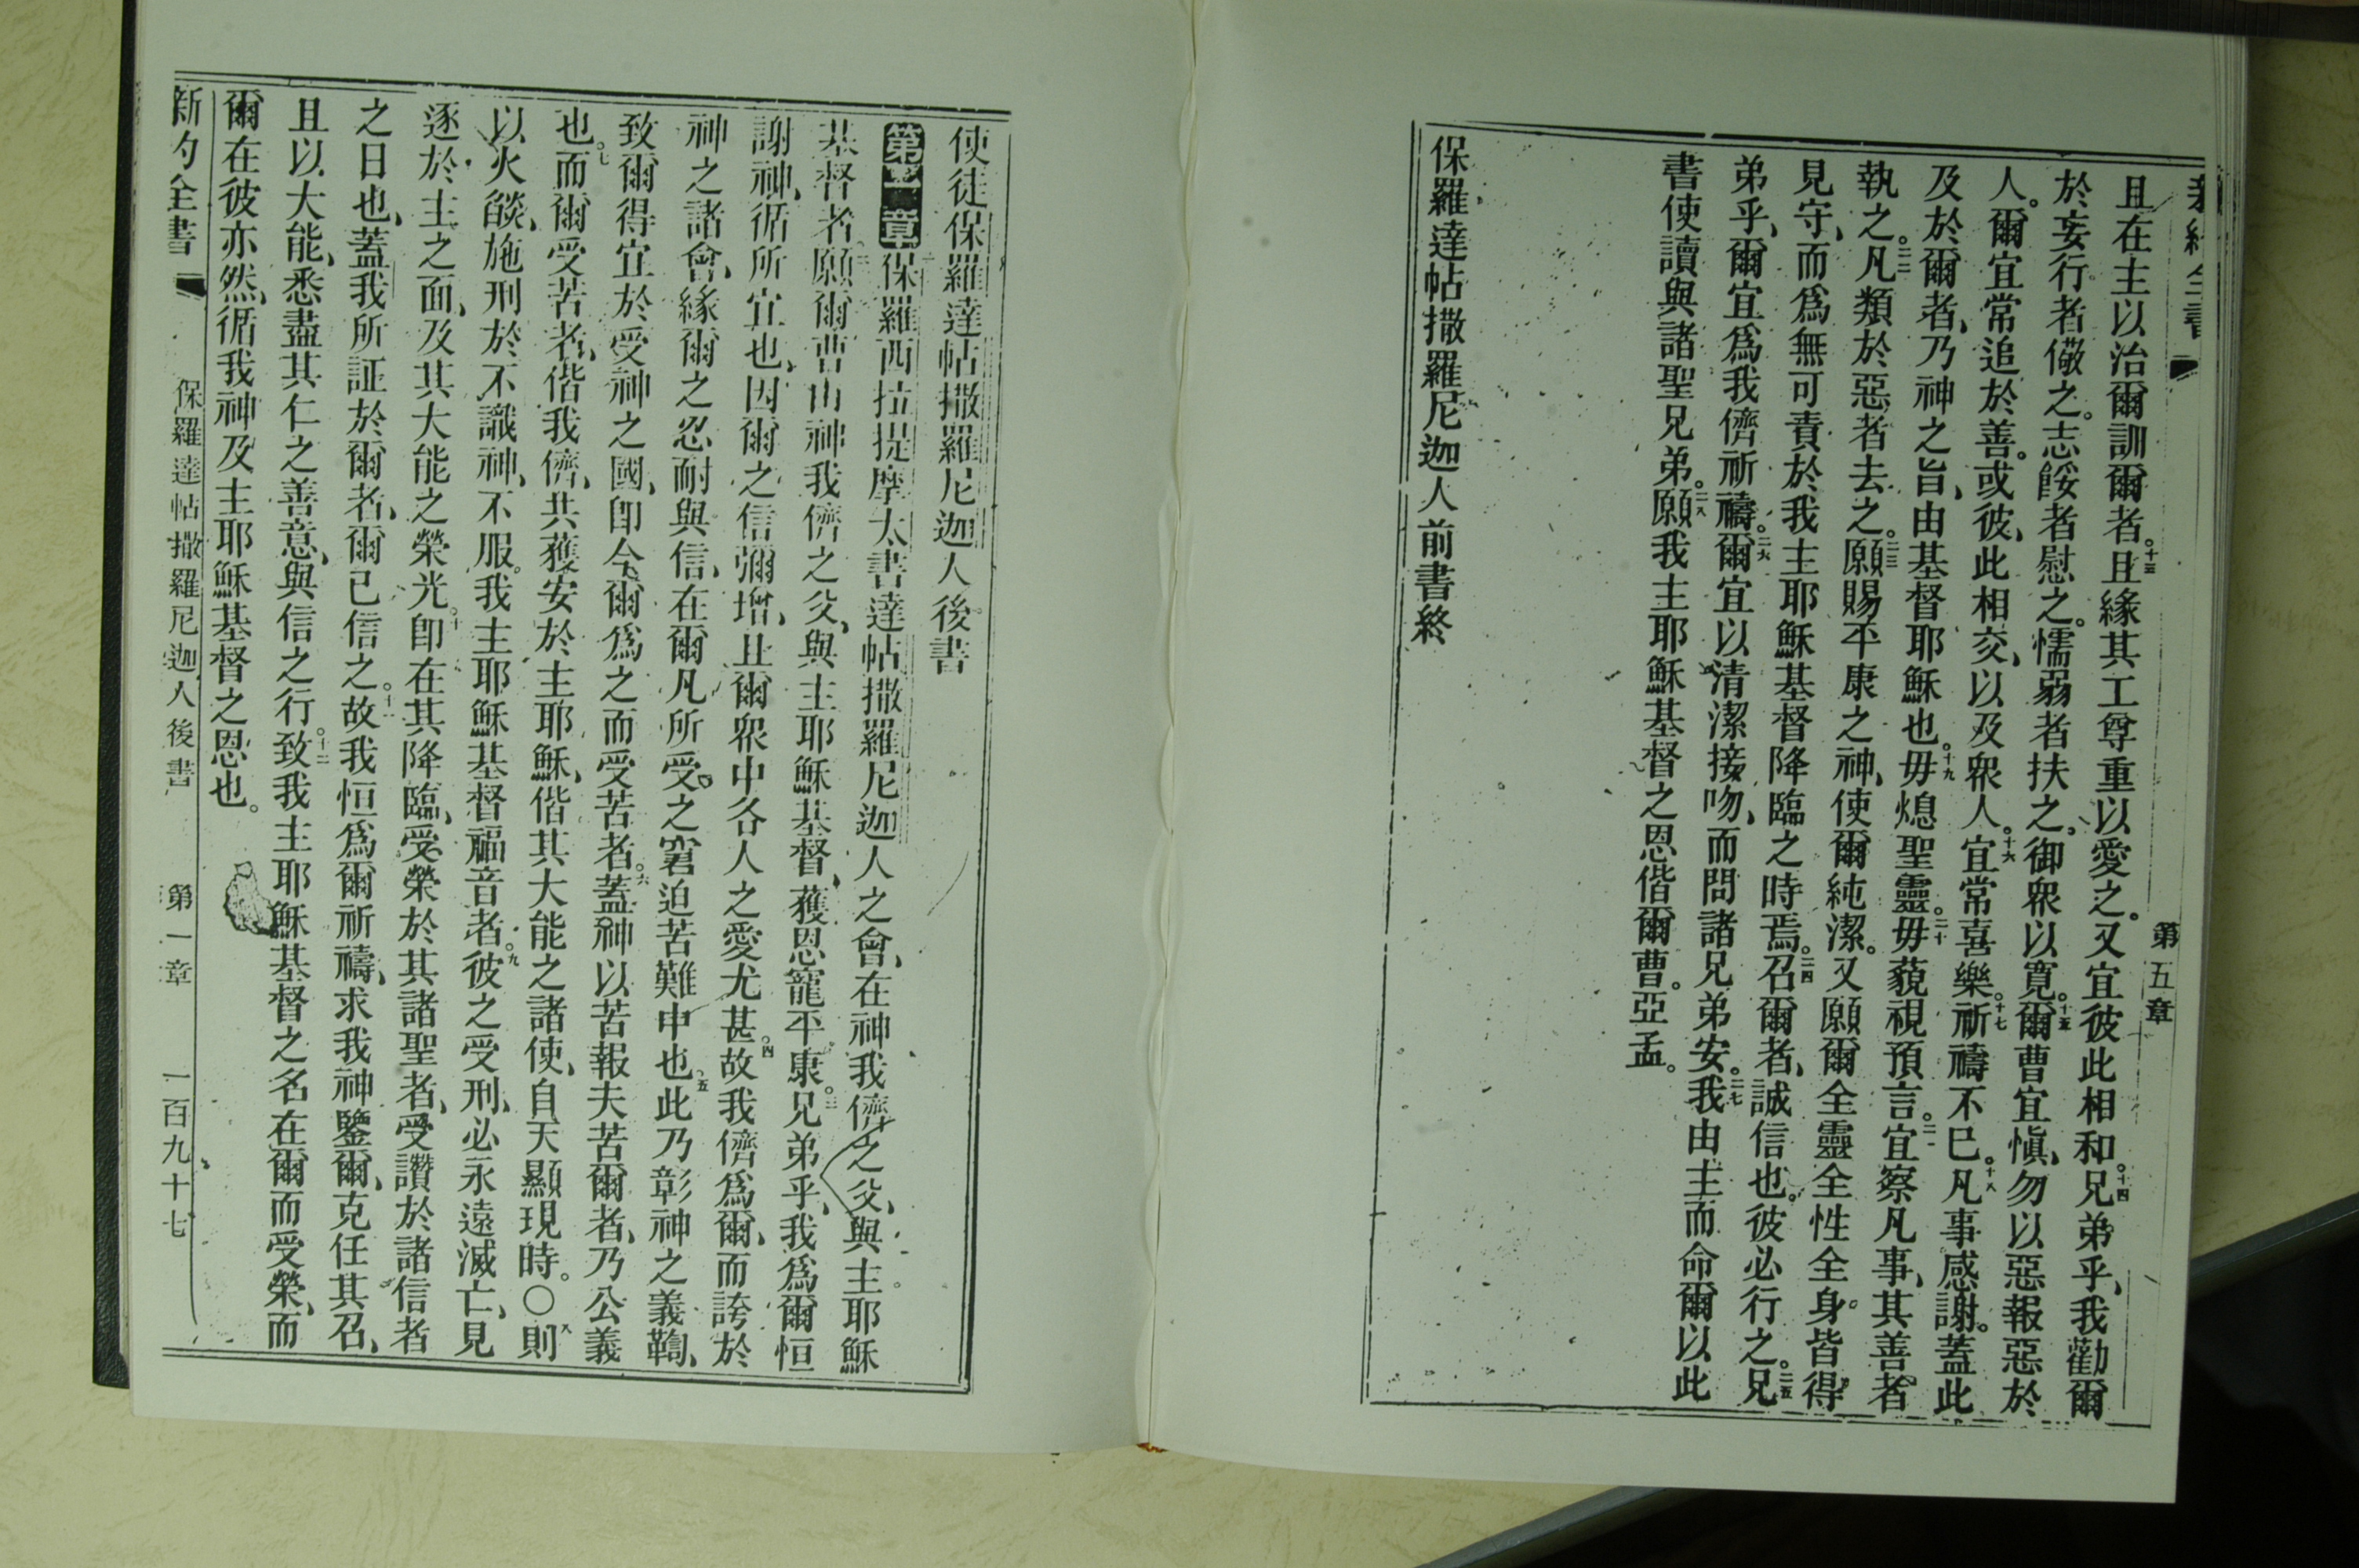 新約全書
第五章
且在主以治爾訓爾者。十三且緣其工尊重以愛之。又宜彼此相和。十四兄弟乎、我勸爾
於妄行者儆之。志餒者慰之。懦弱者扶之。御眾以寬。十五爾曹宜愼、勿以惡報惡於
人。爾宜常追於善。或彼此相交、以及眾人。十六宜常喜樂。十七祈禱不已。十八凡事感謝。蓋此
及於爾者、乃神之旨、由基督耶穌也。十九毋熄聖靈。二十毋藐視預言。二一宜察凡事、其善者
執之。二二凡類於惡者去之。二三願賜平康之神、使爾純潔。又願爾全靈全性全身。皆得
見守、而爲無可責於我主耶穌基督降臨之時焉。二四召爾者、誠信也。彼必行之。二五兄
弟乎、爾宜爲我儕祈禱。二六爾宜以清潔接吻、而問諸兄弟安。二七我由主而命爾以此
書使讀與諸聖兄弟。二八願我主耶穌基督之恩偕爾曹。亞孟。
保羅達帖撒羅尼迦人前書終
使徒保羅達帖撒羅尼迦人後書
第一章 一保羅西拉提摩太書達帖撒羅尼迦人之會、在神我儕之父、與主耶穌
基督者。二願爾曹由神我儕之父、與主耶穌基督、獲恩寵平康。三兄弟乎、我爲爾恒
謝神、循所宜也、因爾之信彌增、且爾眾中各人之愛尤甚。四故我儕爲爾、而誇於
神之諸會、緣爾之忍耐與信、在爾凡所受之窘迫苦難中也。五此乃彰神之義鞫、
致爾得宜於受神之國、卽今爾爲之而受苦者。六蓋神以苦報夫苦爾者、乃公義
也。七而爾受苦者、偕我儕、共獲安於主耶穌、偕其大能之諸使、自天顯現時。〇八則
以火燄、施刑於不識神、不服我主耶穌基督福音者。九彼之受刑、必永遠滅亡、見
逐於主之面、及其大能之榮光。十卽在其降臨、受榮於其諸聖者、受讚於諸信者
之日也、蓋我所証於爾者、爾已信之。十一故我恒爲爾祈禱、求我神鑒爾、克任其召、
且以大能、悉盡其仁之善意、與信之行。十二致我主耶穌基督之名在爾而受榮、而
爾在彼亦然、循我神及主耶穌基督之恩也。
新約全書
保羅達帖撒羅尼迦人後書
第一章
一百九十七